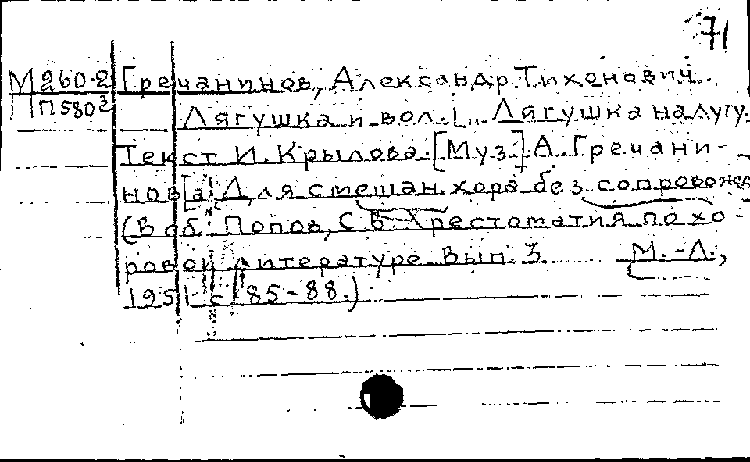 71
М 260-2 Гречанинов, Александр Тихонович.
П 580з Лягушка и вол. [... Лягушка на лугу.
Текст И. Крылова. [Муз.] А. Гречани-
нов[а] Для смешан. хора без сопровожд
(В сб.: Попов, С.В. Хрестоматия по хо-
ровой литературе. Вып. 3. М.-Л.,
1951 с. 85-88.)